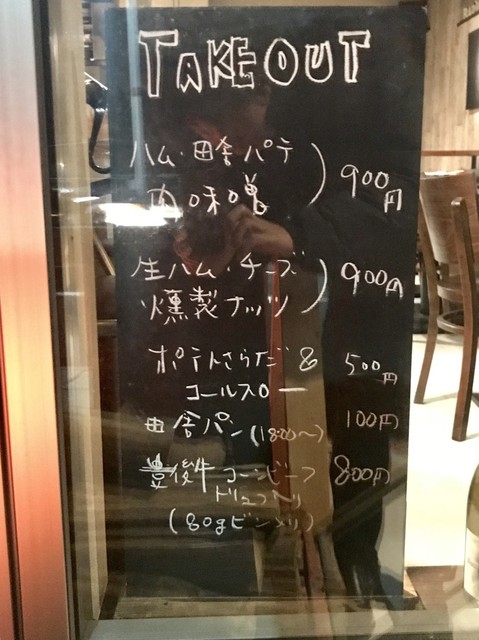 TAKEOUT
ハム・田舎パテ
肉味噌 ) 900円
生ハム・チーズ
燻製ナッツ ) 900円
ポテトさらだ &
コールスロー 500円
田舎パン (18:00〜) 100円
豊後牛 コンビーフ 800円
トリュフ入り
(80gビン入り)